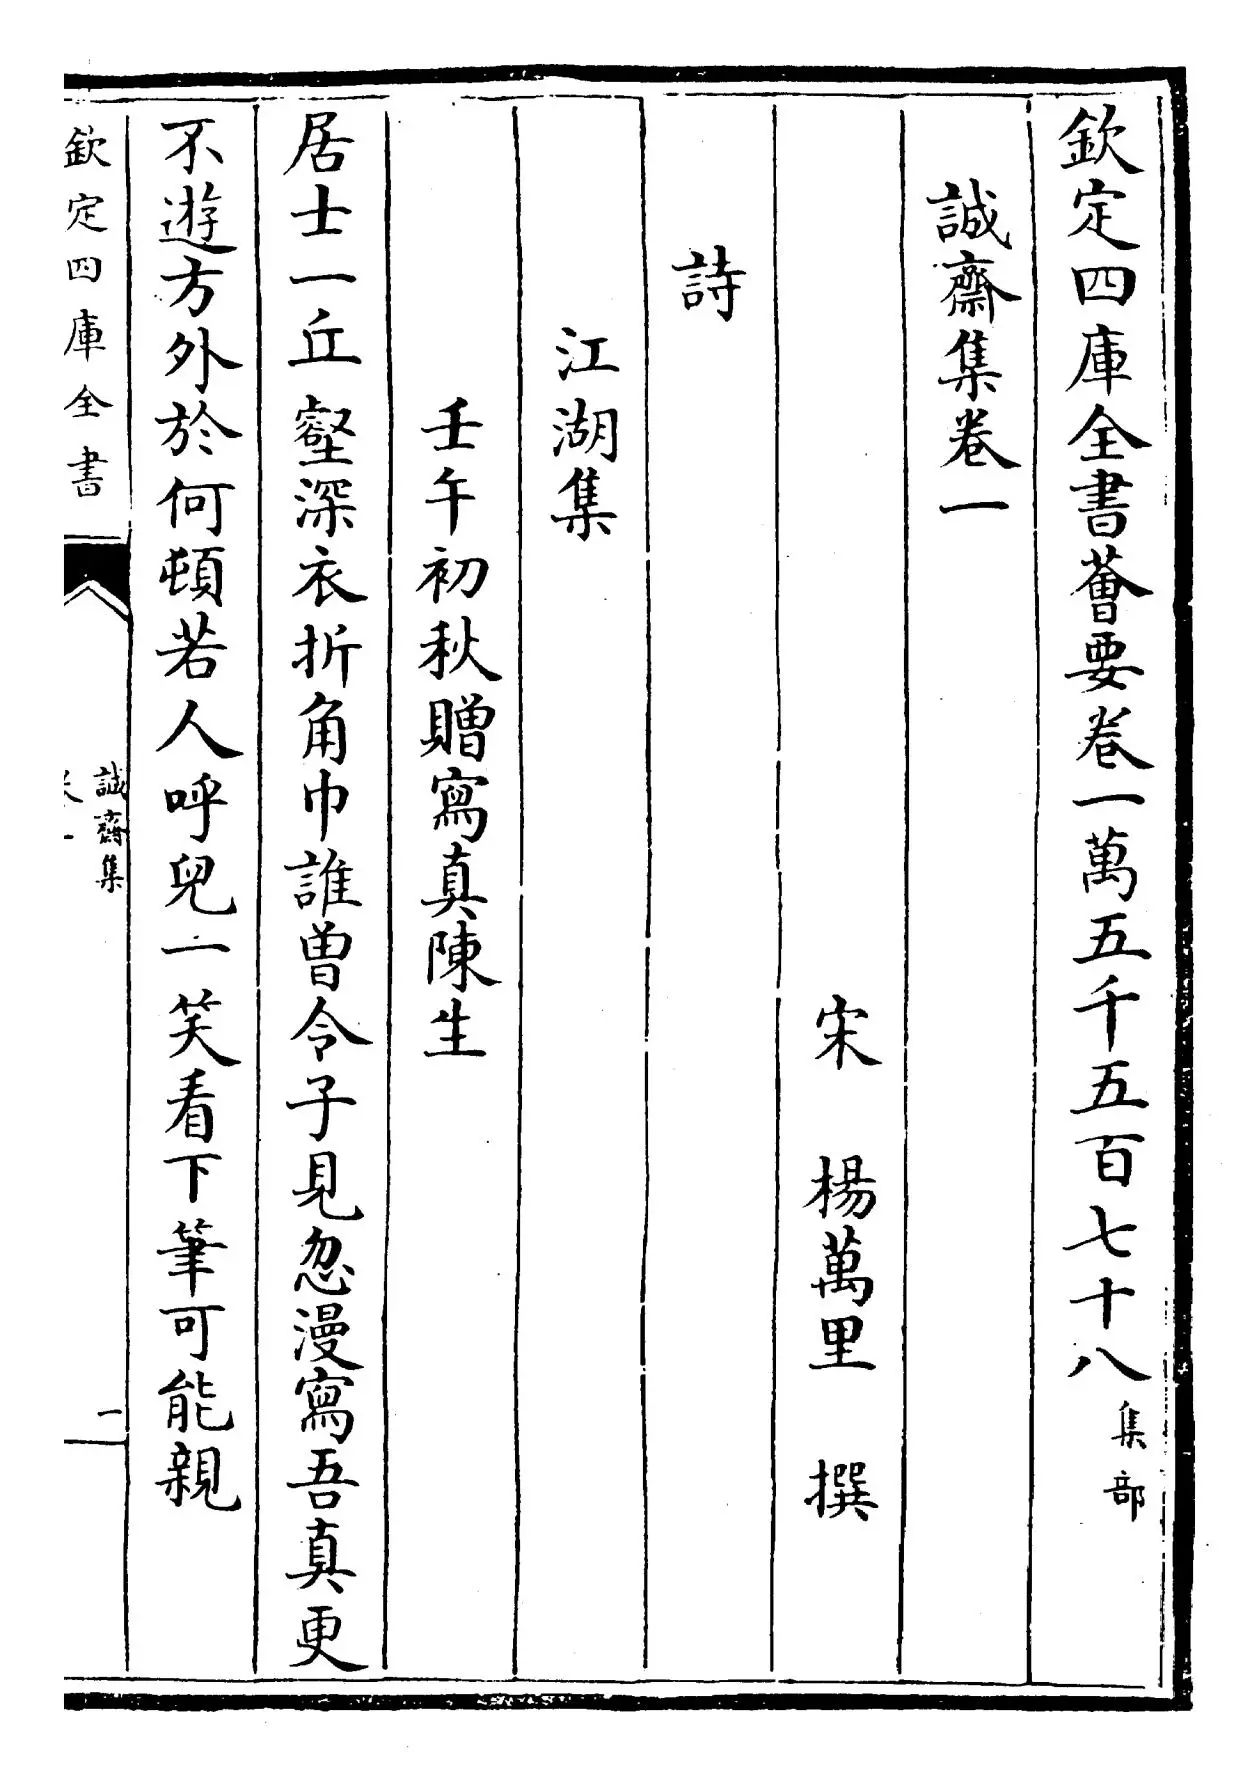 欽定四庫全書薈要卷一萬五千五百七十八集部
誠齋集卷一
宋　楊萬里　撰
詩
江湖集
壬午初秋贈寫真陳生
居士一丘壑深衣折角巾誰曾令子見忽漫寫吾真更
不遊方外於何頓若人呼兒一笑看下筆可能親
欽定四庫全書
誠齋集
一